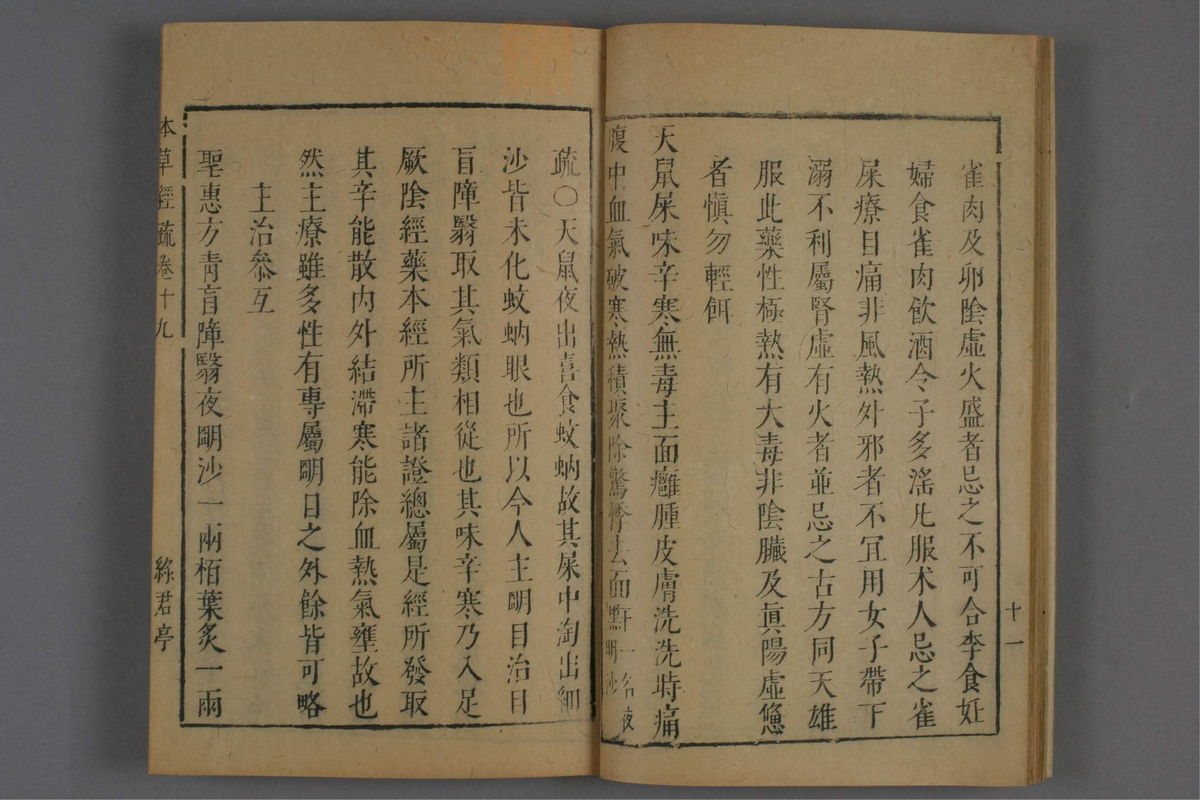 雀肉及卵陰虛火盛者忌之不可合李食妊
婦食雀肉飲酒令子多滛凡服术人忌之雀
屎療目痛非風熱外邪者不宜用女子帶下
溺不利屬腎虛有火者並忌之古方同天雄
服此藥性極熱有大毒非陰臟及眞陽虛憊
者愼勿輕餌
天鼠屎味辛寒無毒主面癰腫皮膚洗洗時痛
腹中血氣破寒熱積聚除驚悸去面䵟一名夜
明沙
十一
疏〇天鼠夜出喜食蚊蚋故其屎中淘出細
沙皆未化蚊蚋眼也所以今人主明目治目
盲障翳取其氣類相從也其味辛寒乃入足
厥陰經藥本經所主諸證總屬是經所發取
其辛能散內外結滯寒能除血熱氣壅故也
然主療雖多性有專屬明目之外餘皆可略
主治參互
聖惠方青盲障翳夜明沙一兩栢葉炙一兩
本草經疏卷十九
綠君亭